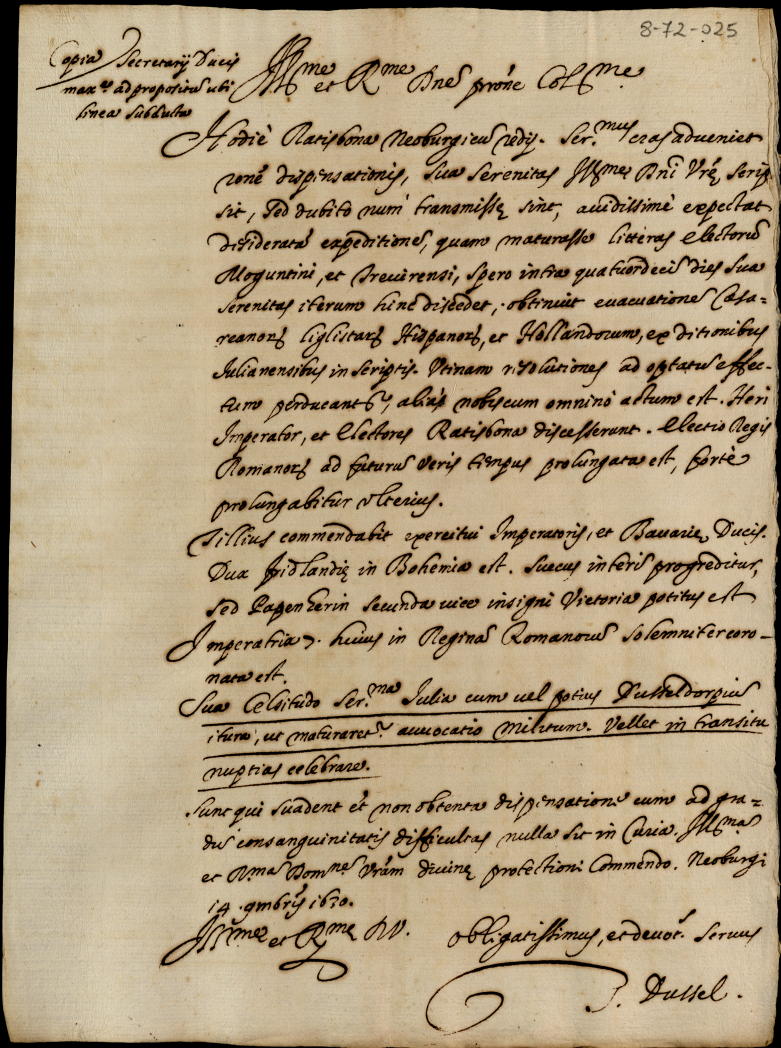 8-72-025
Copia Secretarij Ducis
max.e ad propositũ ubi
linea subducta
Illme et Rme Dne prone Colme
Hodiè Ratisbona Neoburgicũ redij. Ser.mus cras adueniet
rone dispensationis, sua serenitas Illme Dni Vrę scrip
sit, sed dubito num transmissę sint, auidissimè expectat
desideratã expeditionẽ, quam maturasse litteras Electorũ
Moguntini, et Treuirensi, spero intra quatuordecĩ dies sua
serenitas iterum hinc discedet, obtinuit euacuationẽ Cæsa=
reanorũ ligistarũ Hispanorũ, et Hollandorum, ex ditionibus
Iulianensibus in scriptis. Vtinam resolutiones ad optatũ effec-
tum perducantur, aliàs nobiscum omninò actum est. Heri
Imperator, et Electores Ratisbona discesserunt. Electio Regis
Romanorũ ad futurũ veris tempus prolongata est, fortè
prolungabitur vlterius.
Tillius commendabit exercitui Imperatoris, et Bauarię Ducis.
Dux fridlandię in Bohemia est. Suecus interĩ progreditur,
sed Papenherin secunda uice insigni Victoria potitus est
Imperatrix 7. huius in Reginã Romanorũ solemniter coro-
nata est.
Sua Celsitudo Ser.ma Iuliacum uel potius Dusseldorpiũ
itura, ut maturaret.r auuocatio militum. Vellet in transitu
nuptias celebrare.
Sunt qui suadent et non obtenta dispensatione cum ad gra=
dũ consanguinitatis difficultas nulla sit in Curia. Illmã
et Rmã Domnẽ Vrãm diuinę protectioni Commendo. Neoburgi
14. 9mbris 1630.
Illme et Rme DV. obligatissimus, et deuot.s seruus
J. Dussel.